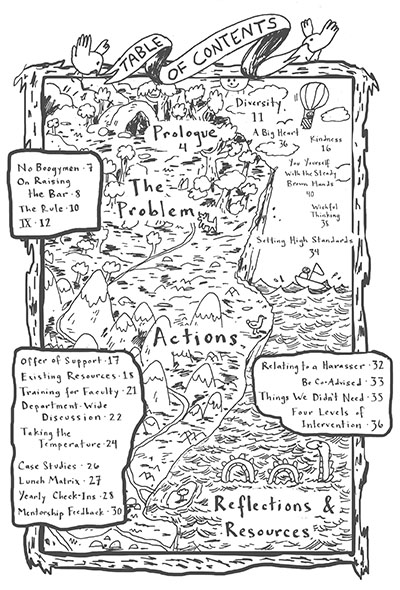 TABLE
OF CONTENTS
Diversity
11
A Big Heart
36
Kindness
16
You Yourself
With the Steady
Brown Hands
40
Wishful
Thinking
38
Setting High Standards
34
Prologue
4
No Boogymen · 7
On Raising
the Bar · 8
The Rule · 10
IX · 12
The
Problem
Actions
Offer of Support · 17
Existing Resources · 18
Training for Faculty · 21
Department-Wide
Discussion · 22
Taking the
Temperature · 24
Case Studies · 26
Lunch Matrix · 27
Yearly Check-Ins · 28
Mentorship Feedback · 30
Relating to a Harasser · 32
Be Co-Advised · 33
Things We Didn't Need · 35
Four Levels of
Intervention · 36
Reflections &
Resources